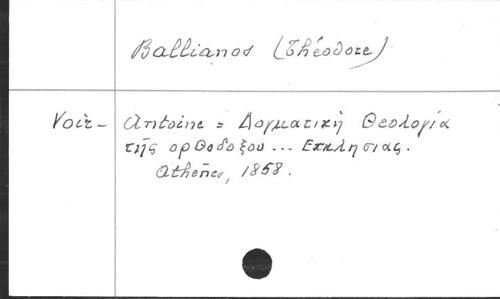 Ballianos (Théodore)
Voir - Antoine = Δογματική Θεολογία
τῆς ορθοδοξου ... Εκκλησιας.
Athènes, 1858.